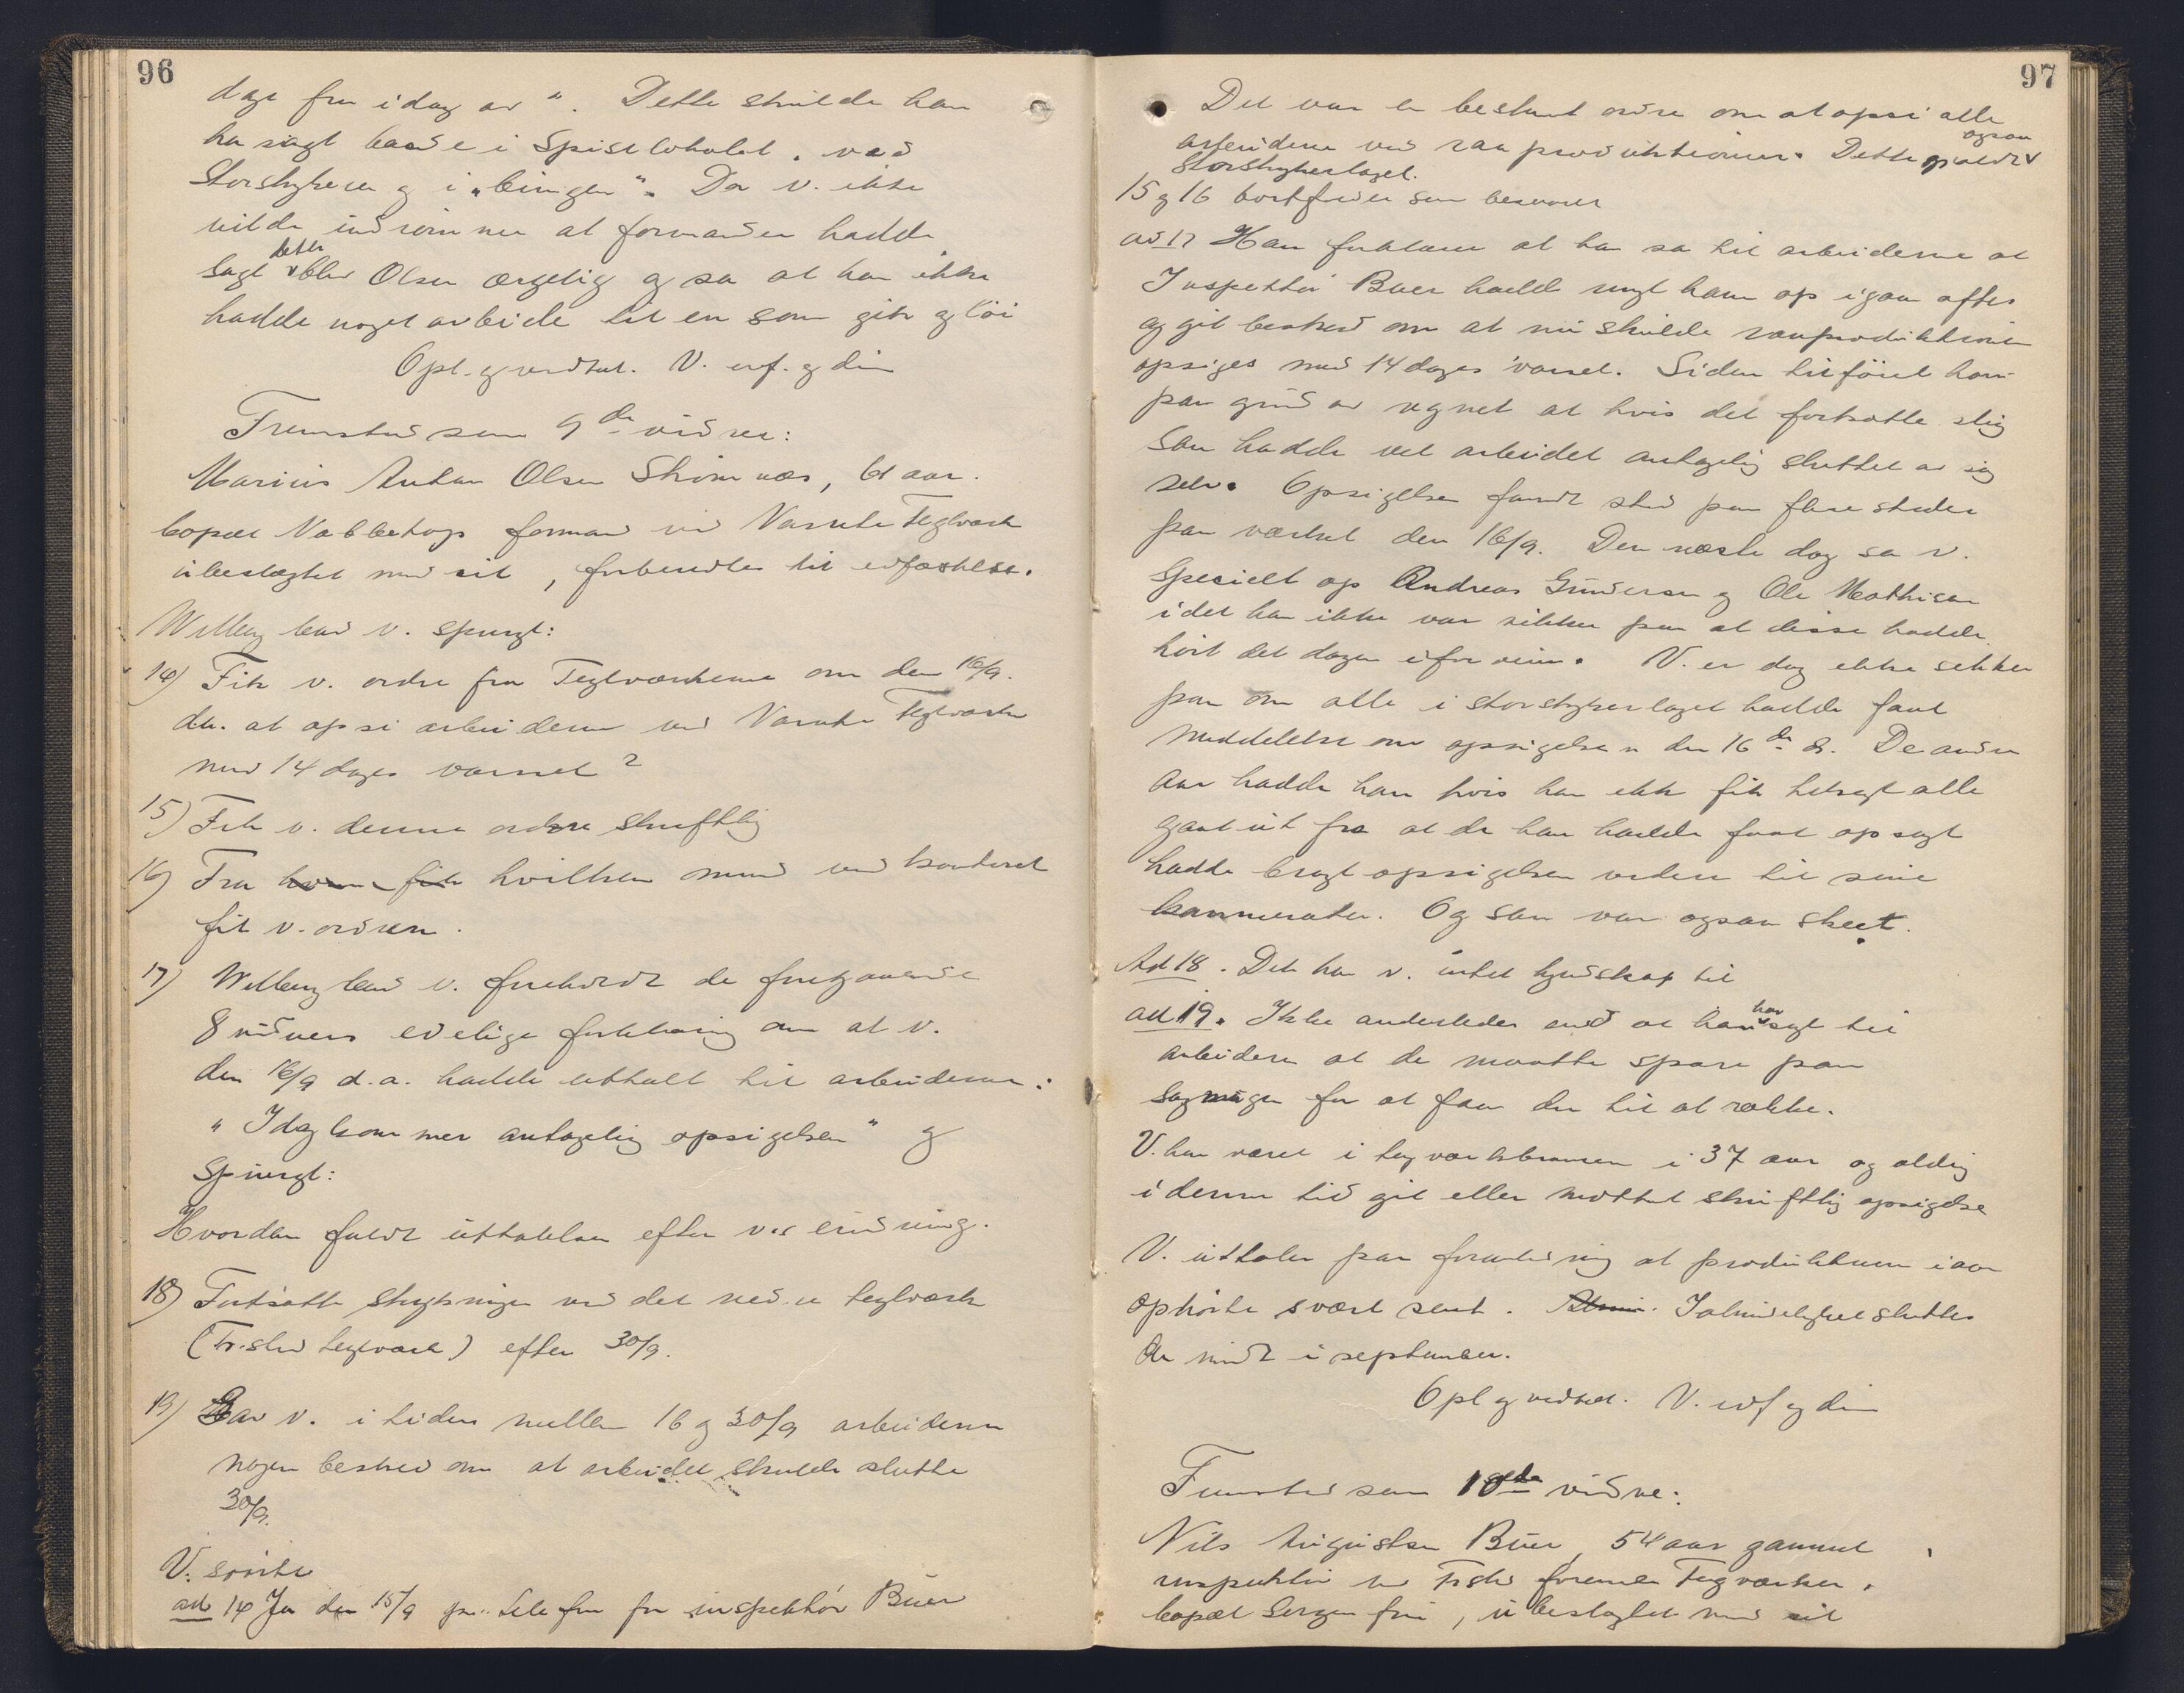 96
dage fra idag av". Dette skulde han
ha sagt baade i Spiselokalet, ved
Storstrykeren og i "bingen". Da v. ikke
vilde indrømme at formanden hadde
dette
sagt blev Olsen ærgelig og sa at han ikke
hadde noget arbeide til en som gik og løi
Opl. og vedtat. V. erf. og dim
Fremstod som 9de vidne:
Marius Anton Olsen Skomnæs, 61 aar.
bopæl Nabbetorp formand ved Teglværk
ubeslægtet med cit, forberedtes til edfæstelse.
Willberg land v. spurgt:
14) Fik v. ordre fra Teglværkerne om den 16/9.
d.a. at opsi arbeiderne ved Teglværk
med 14 dages varsel?
15) Fik v. denne ordre skriftlig
16) Fra hvem fik hvilken mand ved kontoret
fik v. ordren.
17) Willberg lod v. foreholdt de foregaaende
8 vidners edelige forklaring om at v.
den 16/9 d.a. hadde uttalt til arbeiderne:
"Idag kommer antagelig opsigelsen" og
Spurgt:
Hvordan faldt uttalelsen efter v.s erindring.
18) Fortsatte strykningen ved det nedre teglværk
(Fr.stad teglværk) efter 30/9.
19) Gav v. i tiden mellem 16 og 30/9 arbeiderne
nogen besked om at arbeidet skulde slutte
30/9.
V. svarte
ad 14 Ja den 15/9 pr. telefon fra inspektør Buer
97
Det var en bestemt ordre om at opsi alle
ogsaa
arbeiderne ved raaproduktionen. Dette gjaldt
Storstrykerlaget.
15 og 16 bortfalder som besvaret
ad 17 Han forklarer at han sa til arbeiderne at
Inspektør Buer hadde ringt ham op igaar aftes
og git besked om at nu skulde raaproduktionen
opsiges med 14 dages varsel. Siden tilføiet han
paa grund av regnet at hvis det fortsatte slig
saa hadde vel arbeidet antagelig sluttet av sig
selv. Opsigelsen fandt sted paa flere steder
paa værket den 16/9. Den næste dag sa v.
specielt op Andreas Gundersen og Ole Mathisen
idet han ikke var sikker paa at disse hadde
hørt det dagen iforveien. V. er dog ikke sikker
paa om alle i storstrykerlaget hadde faat
meddelelse om opsigelsen den 16de ds. De andre
aar hadde han hvis han ikke fik tilsagt alle
gaat ut fra at de han hadde faat opsagt
hadde bragt opsigelsen videre til sine
kammerater. Og saa var ogsaa skeet.
Ad 18. Det har v. intet kjendskap til
ad 19. Ikke anderledes end at han
har
sagt til
arbeiderne at de maatte spare paa
sagmugen for at faa den til at række.
V. har været i teglværksbransjen i 37 aar og aldrig
i denne tid git eller mottat skriftlig opsigelse
V. uttaler paa foranledning at produktionen iaar
ophørte svært sent. Almin. I almindelighet sluttes
der midt i september.
Opl og vedtat. V. edf og dim
Fremstod som 10de vidne:
Nils Augustsen Buer, 54 aar gammel
inspektør ved Fr.stad forenede Teglværker,
bopæl Borgen frue, ubeslægtet med cit